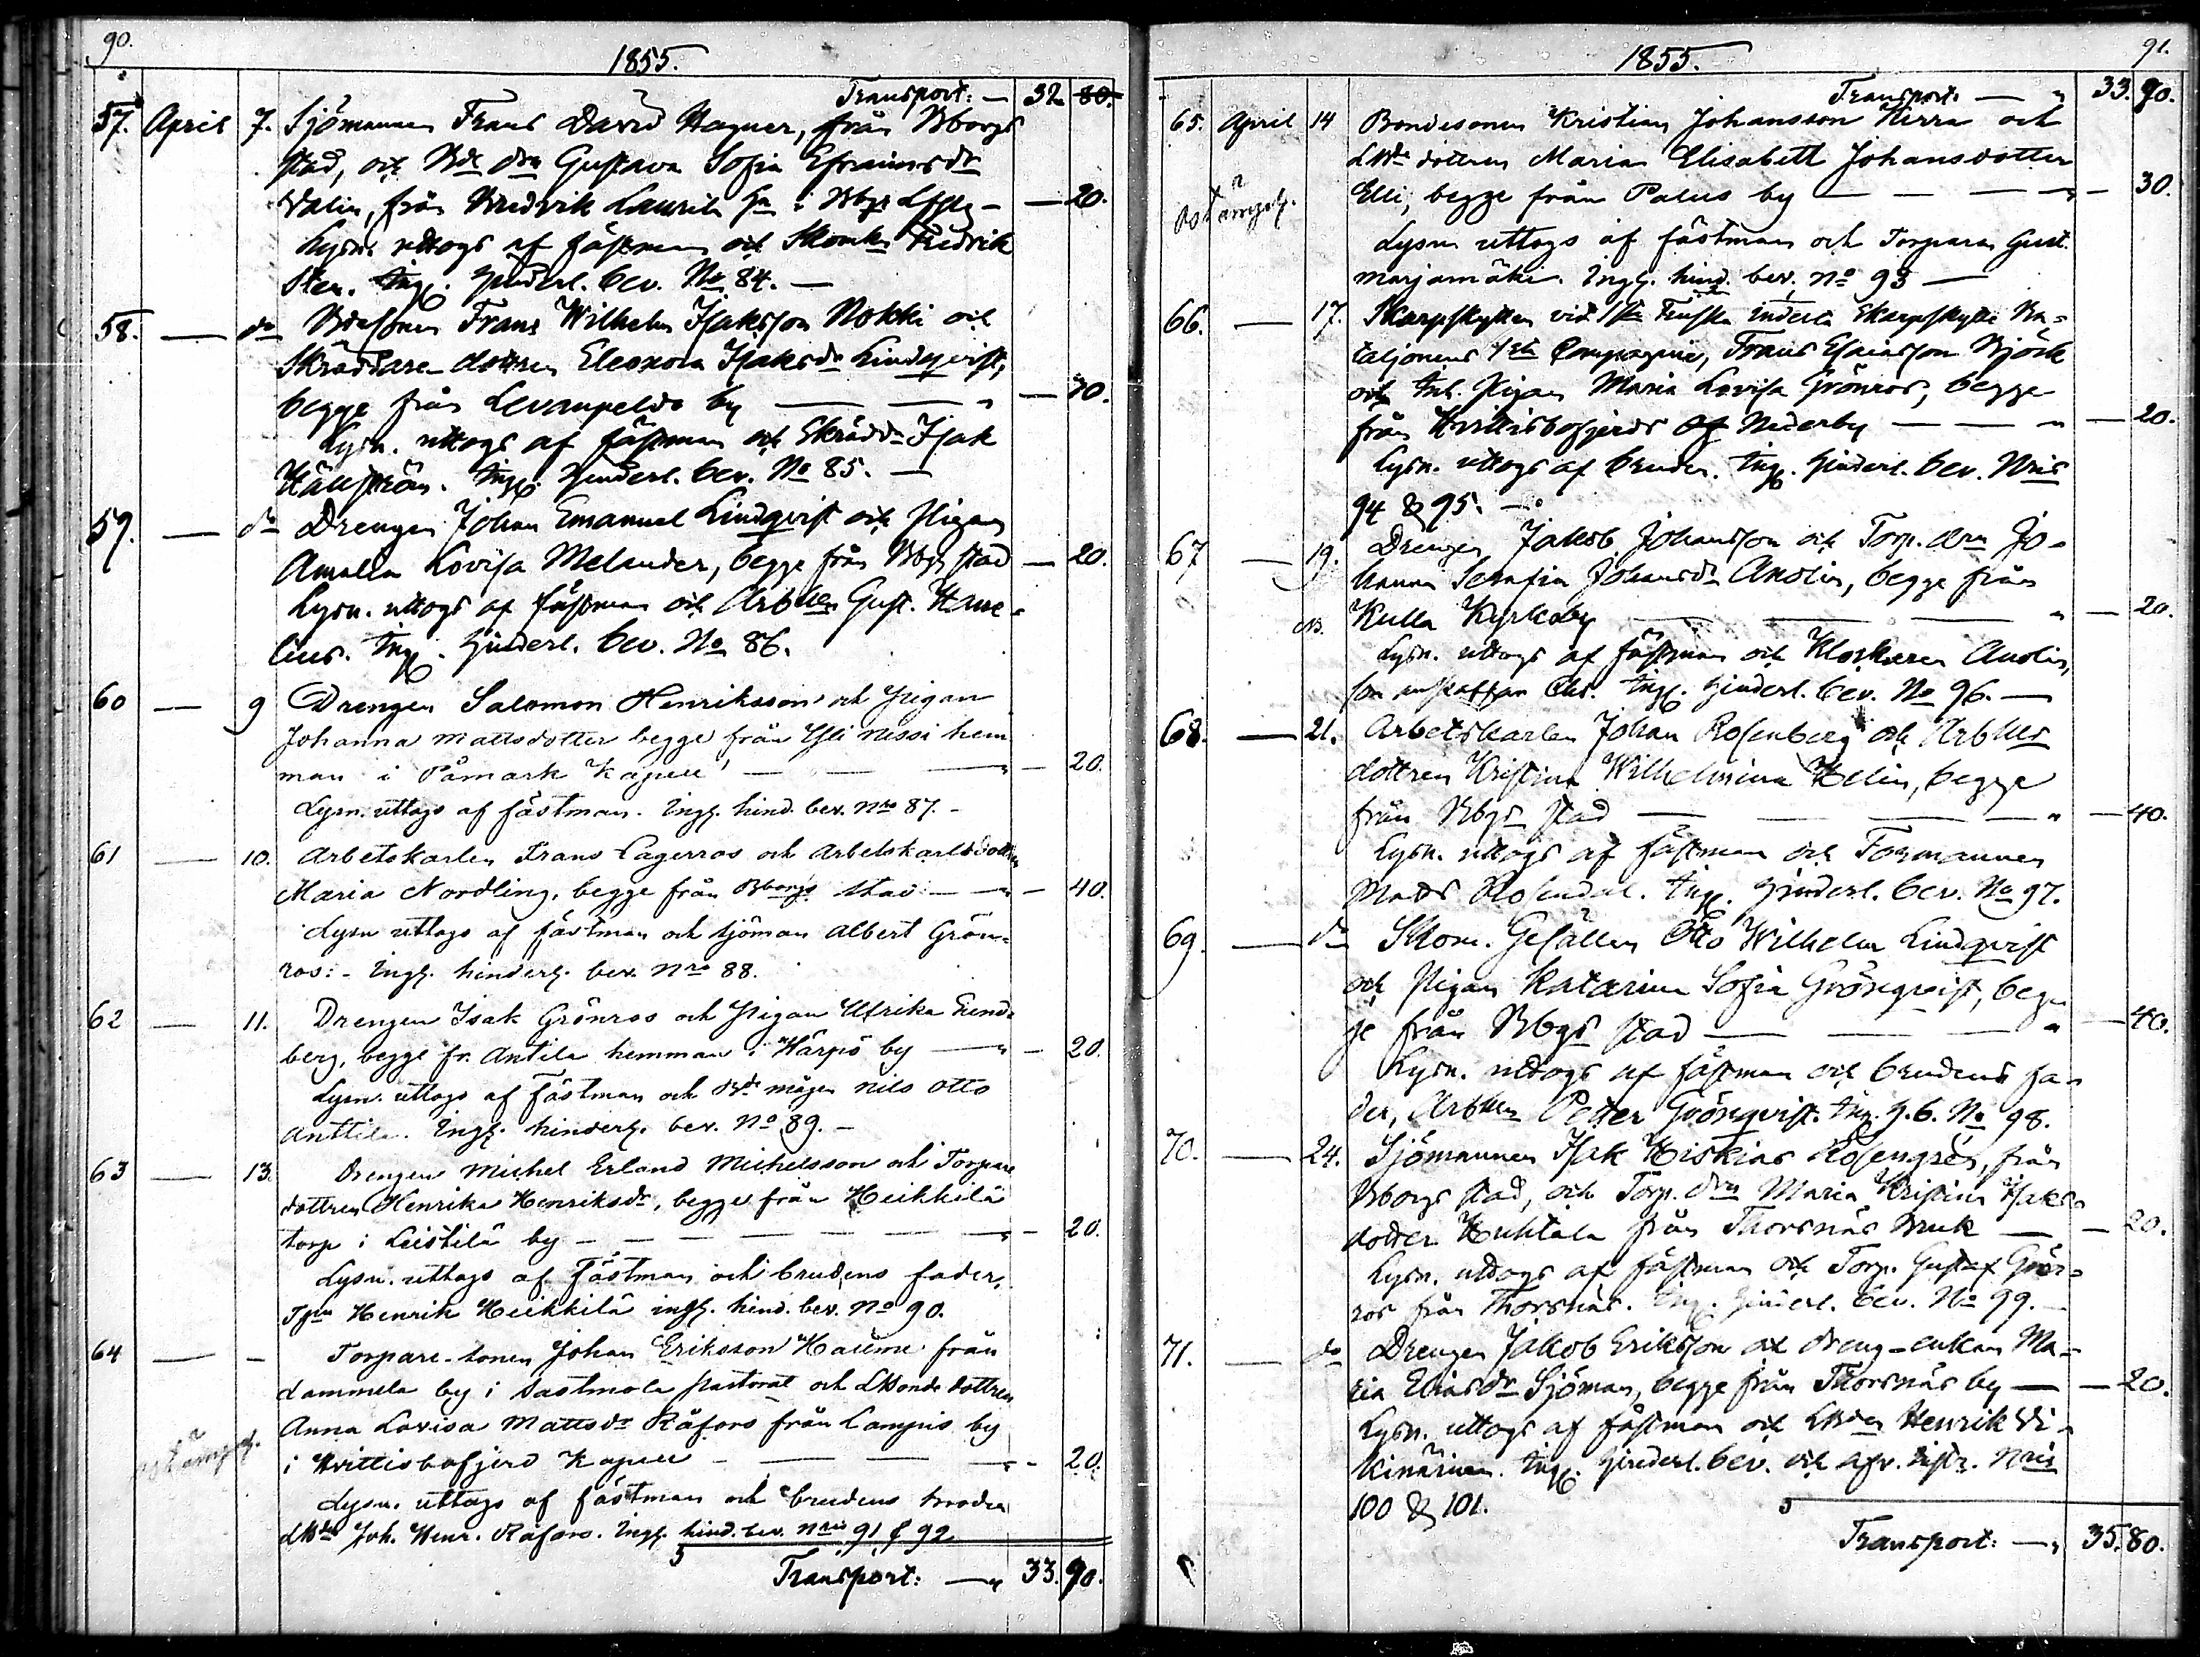 90.
1855.
Transport: — 32 80.
57. April 7. Sjömannen Frans David Hagner, från Bborgs
stad, och Bde dra Gustava Sofia Efraimsdr
Valin, från Bredvik Laurila hn i Bbgs Lfsg — — 20.
Lysn. uttogs af fästman och Skomkn Fredrik
Sten. Ingl. hinderl. bev. No 84. —
58. — do Bdesonen Frans Wilhelm Isaksson Nokki och
Skräddare dottren Eleonora Isaksdr Lindqvist,
begge från Levanpelto by — — " — 70.
Lysn. uttogs af fästman och Skrädd. Isak
Hällström. Ingl. hinderl. bev. No 85. —
59. — do Drengen Johan Emanuel Lindqvist och Pigan
Amalia Lovisa Melander, begge från Bbgs stad — 20.
Lysn. uttogs af fästman och Arbkln Gust. Hane-
lius. Ingl. hinderl. bev. No 86.
60 — 9 Drengen Salomon Henriksson och Pigan
Johanna Mattsdotter begge från Yli nissi hem
man i Påmark Kapell — — — " — 20.
Lysn. uttogs af fästman. Ingl. hind. bev. nro 87. —
61 — 10. Arbetskarlen Frans Lagerros och Arbetskarlsdottren
Maria Nordling, begge från Bborgs stad — " — 40.
Lysn uttogs af fästman och sjöman Albert Grön-
ros: - Ingl. hinderl. bev. nro 88.
62 — 11. Drengen Isak Grönros och Pigan Ulrika Lind-
berg, begge fr. Antila hemman i Härpö by — " — 20.
Lysn. uttogs af Fästman och Bde mågen Nils Otto
Anttila. Ingl. hinderl. bev. No 89. —
63 — 13. Drengen Michel Erland Michelsson och Torpare
dottren Henrika Henriksdr, begge från Heikkilä
torp i Leistilä by — — — — — " — 20.
Lysn. uttogs af Fästman och brudens fader,
Tpn Henrik Heikkilä ingl. hind. bev. No 90.
64 — — Torpare-sonen Johan Eriksson Haume från
Lammela by i Sastmola Pastorat och LBonde dottren
Anna Lovisa Mattsdr Råfors från Lampis by
i Hvittisbofjerd Kapell — — — " — 20.
Lysn. uttogs af fästman och brudens broder
LBdn Joh. Henr. Råfors. Ingl. hind. bev. nris 91 & 92
Transport: — " 33. 90.
91.
1855.
Transport: — " 33. 90.
65. April 14 Bondesonen Kristian Johansson Herra och
LBde dottren Maria Elisabett Johansdotter
Elli, begge från Palus by — — — " — 30.
Lysn uttogs af fästman och Torparen Gust.
Marjamäki. Ingl. hind. bev. no 93 —
66. — 17. Skarpskytten vid 1sta Finska indelta Skarpskytte Ba-
taljonens 1sta Compagnie, Frans Esaiasson Björk
och Inh. Pigan Maria Lovisa Grönros, begge
från Hvittisbofjerds Nederby — — — " — 20.
Lysn. uttogs af bruden. Ingl. hinderl. bev. Nris
94 & 95. —
67 — 19. Drengen Jakob Johansson och Torp. dra Jo-
hanna Serafia Johansdr Anolin, begge från
NB. Kulla Kyrkoby — — — " — 20.
Lysn. uttogs af fästman och Klockaren Anolin,
Ingl. hinderl. bev. No 96. —
68. — 21. Arbetskarlen Johan Rosenberg och Arbkls
dottren Kristina Wilhelmina Helin, begge
från Bbgs stad — — — " — 40.
Lysn. uttogs af fästman och Formannen
Mats Rosendal. Ingl. hinderl. bev. No 97.
69. — do Skom. Gesällen Otto Wilhelm Lindqvist
och Pigan Katarina Sofia Grönqvist, beg-
ge från Bbgs stad — — — " — 40.
Lysn. uttogs af fästman och brudens fa-
der, Arbkln Petter Grönqvist. Ing. h. b. No 98.
70. — 24. Sjömannen Isak Hiskias Rosengrén, från
Bborgs stad, och Torp. dra Maria Kristina Isaks-
dotter Huhtala från Thorsnäs Bruk — — 20.
Lysn. uttogs af fästman och Torp. Gustaf Grön-
ros från Thorsnäs. Ing. hinderl. bev. No 99. —
71. — do Drengen Jakob Eriksson och dreng-enkan Ma-
ria Eliasdr Sjöman, begge från Thorsnäs by — — 20.
Lysn. uttogs af fästman och LBden Henrik Vi-
kinäinen. Ingl. hinderl. bev. och afv. Nris
100 & 101.
Transport: — " 35. 80.